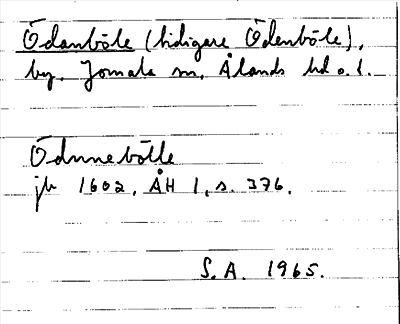 Ödanböle (tidigare Ödenböle),
by, Jomala sn, Ålands hd o. l.
Ödnnebölle
jb 1602, ÅH 1, s. 376.
S. A. 1965.